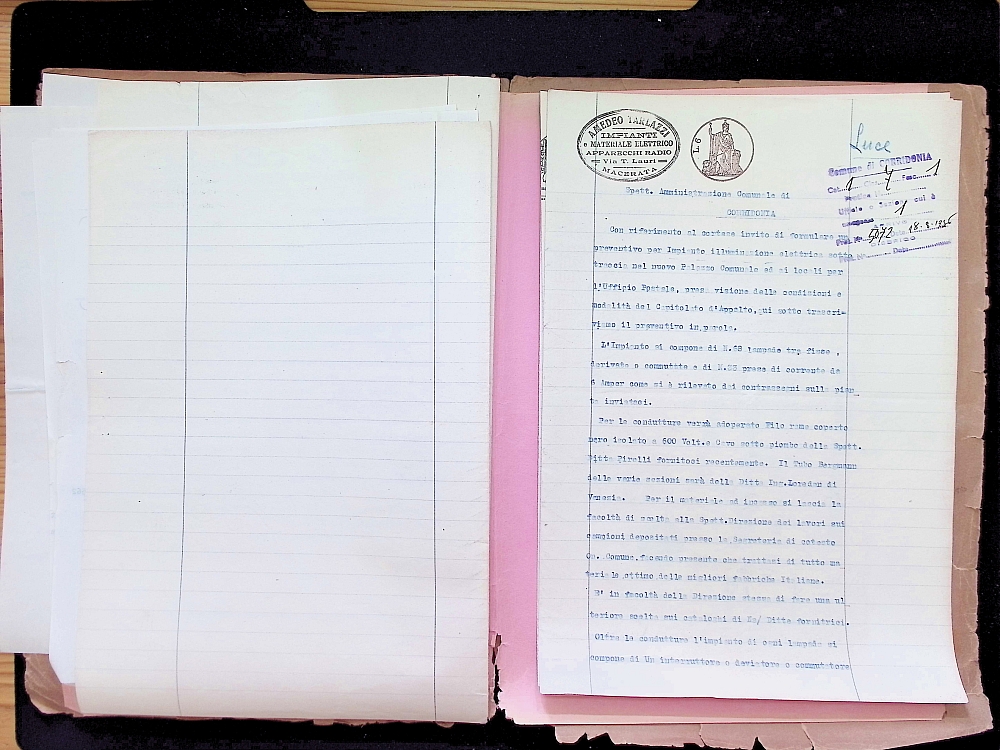 AMEDEO TARLAZZI
IMPIANTI
e MATERIALE ELETTRICO
APPARECCHI RADIO
Via T. Lauri
MACERATA
L. 6
Luce
Comune di CORRIDONIA
Cat. 1 4 Fasc. 1
1 cui è
Prot. N° 5072 18-8-1936
Spett. Amministrazione Comunale di
CORRIDONIA
Con riferimento al cortese invito di formulare un
preventivo per Impianto illuminazione elettrica sotto
traccia nel nuovo Palazzo Comunale ed ai locali per
l'Ufficio Postale, presa visione delle condizioni e
modalità del Capitolato d'Appalto, qui sotto trascri-
viamo il preventivo in parola.
L'Impianto si compone di N.68 lampade tra fisse ,
derivate o commutate e di N.23 prese di corrente da
6 Amper come si è rilevato dai contrassegni sulla pian
ta inviataci.
Per le condutture verrà adoperato Filo rame coperto
nero isolato a 600 Volt.e Cavo sotto piombo della Spett.
Ditta Pirelli fornitoci recentemente. Il Tubo Bergmann
delle varie sezioni sarà della Ditta Ing.Loredan di
Venezia. Per il materiale ad incasso si lascia la
facoltà di scelta alla Spett.Direzione dei lavori sui
campioni depositati presso la Segreteria di cotesto
On. Comune,facendo presente che trattasi di tutto ma
teriale ottimo delle migliori fabbriche Italiane.
E' in facoltà della Direzione stessa di fare una ul
teriore scelta sui cataloghi di Ns/ Ditte fornitrici.
Oltre le condutture l'impianto di ogni lampada si
compone di Un interruttore o deviatore o commutatore